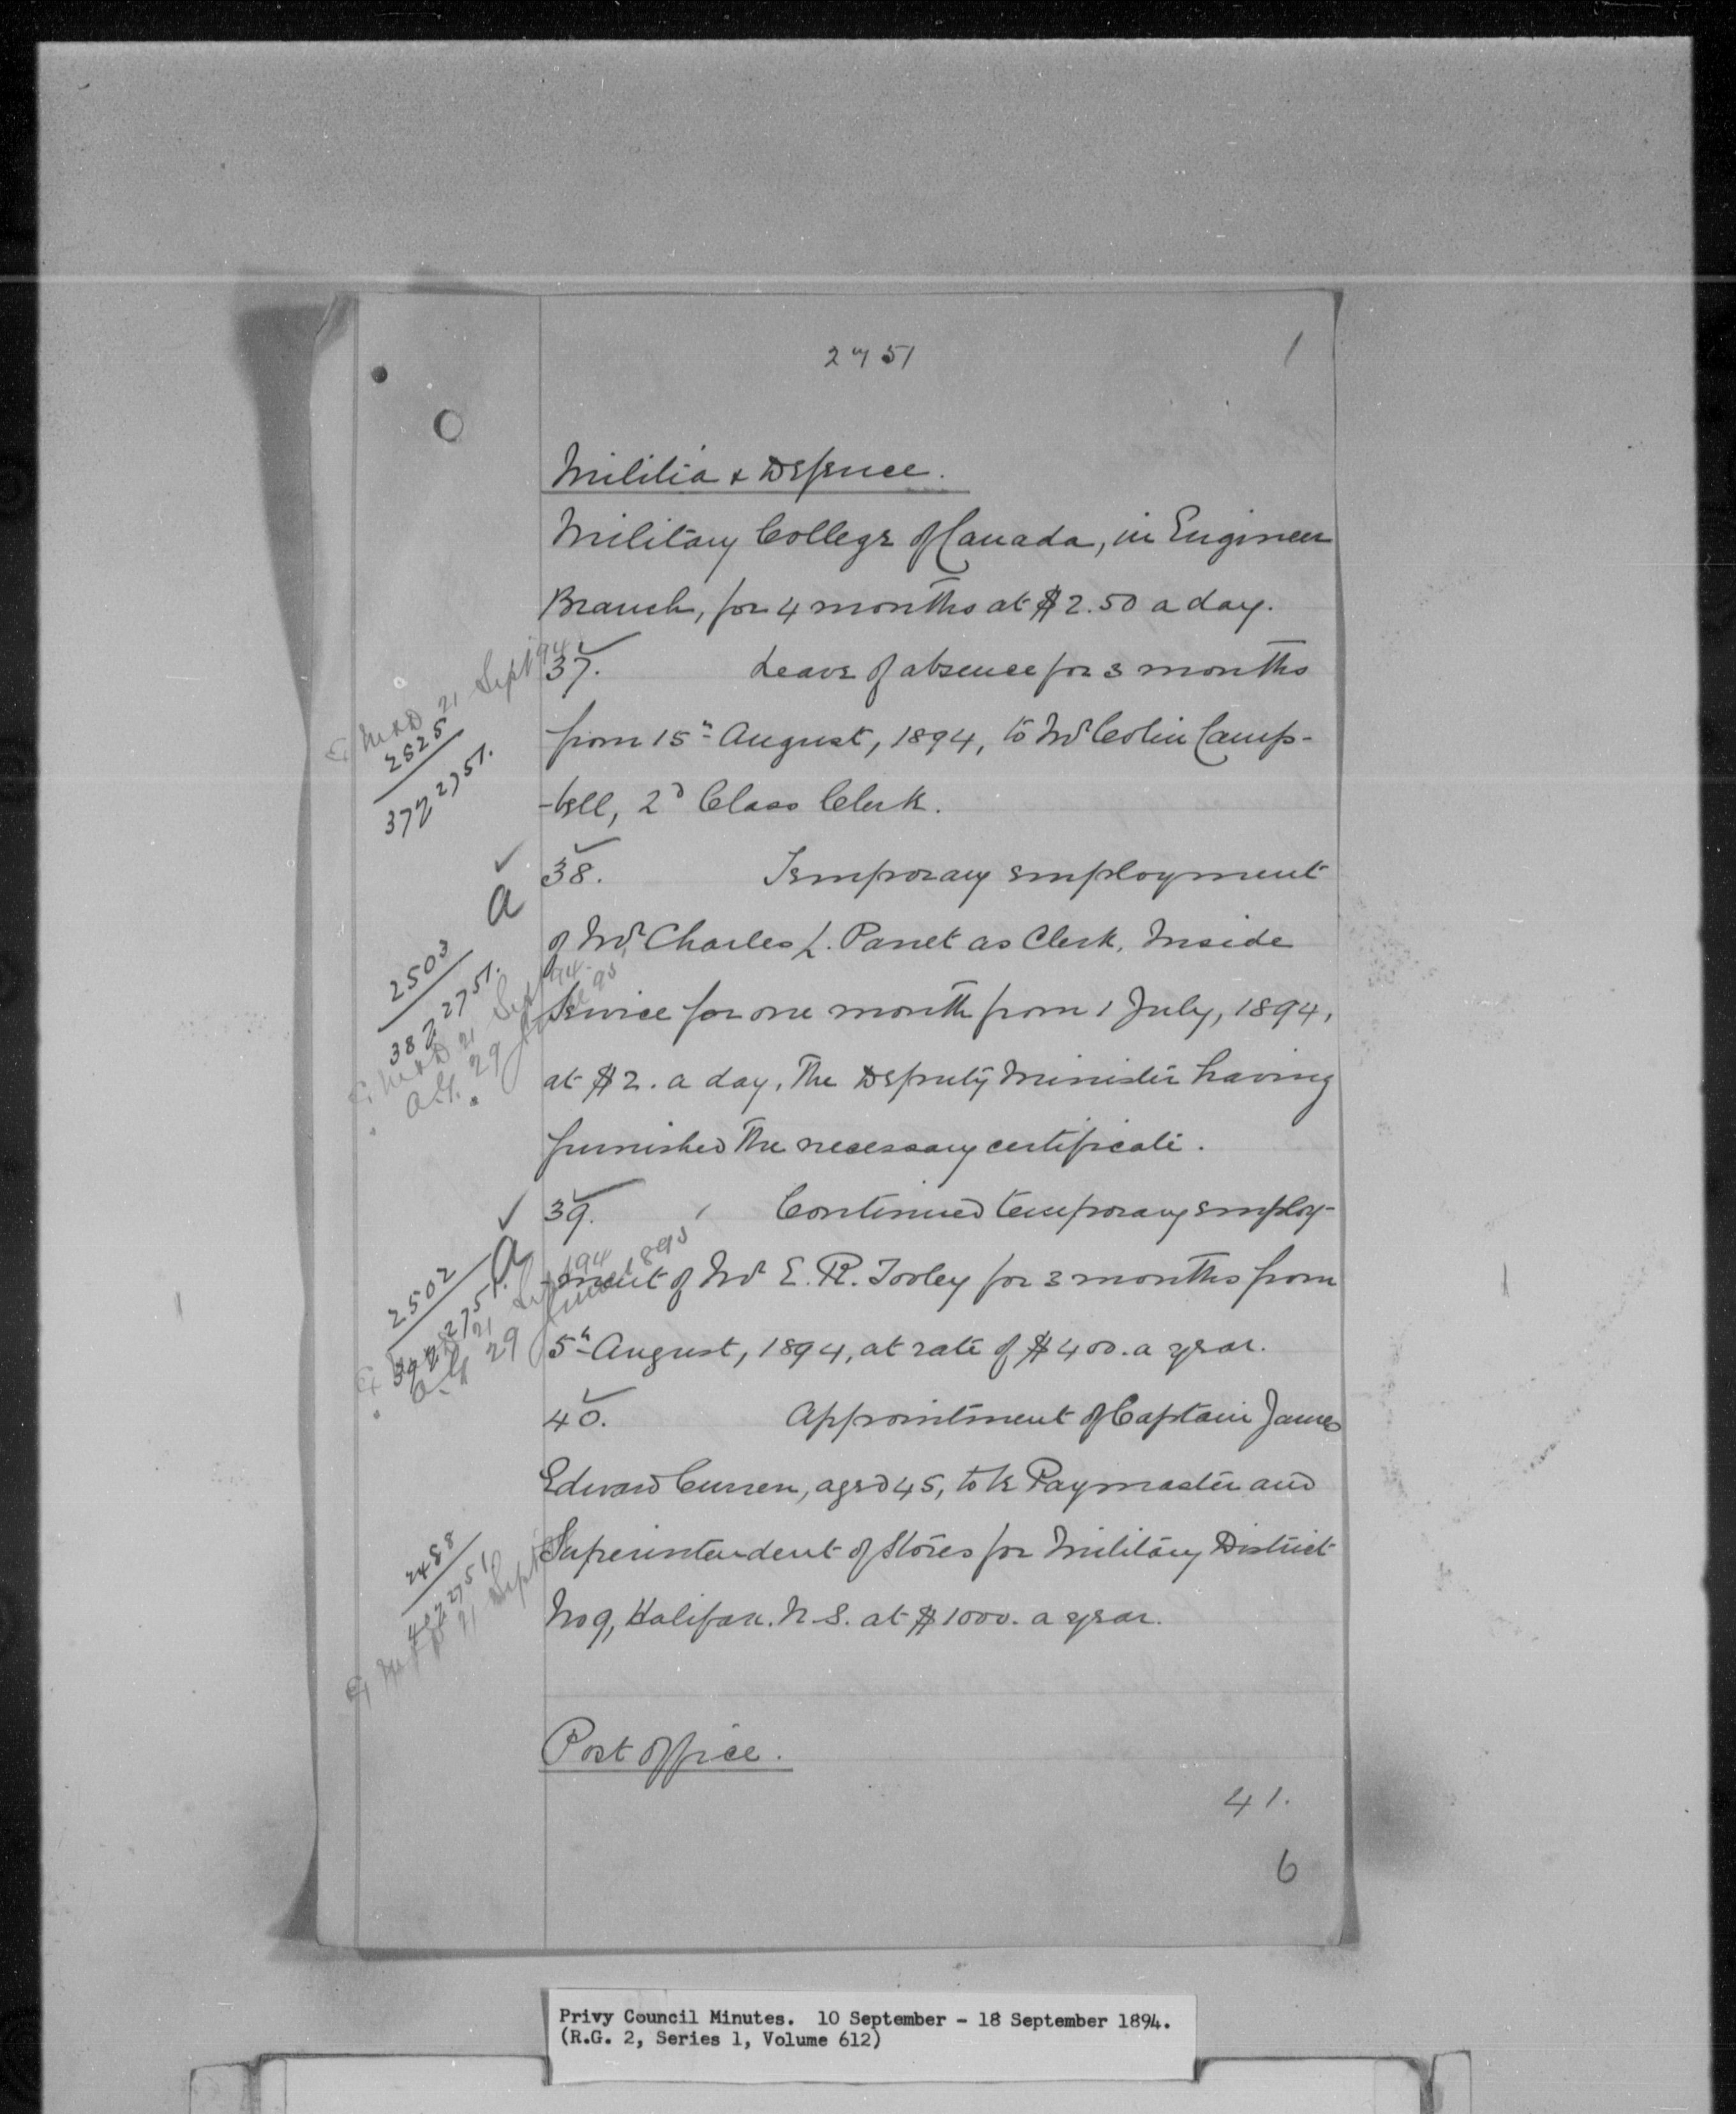 2751
1
Militia & Defence.
Military College of Canada, in Engineer
Branch, for 4 months at $2.50 a day.
37. Leave of absence for 3 months
from 15h August, 1894, to Mr Colin Camp-
-bell, 2d Class Clerk.
38. Temporary employment
of Mr Charles L. Panet as Clerk, Inside
Service for one month from 1 July, 1894,
at $2. a day, the Deputy Minister having
furnished the necessary certificate.
39. Continued temporary employ-
-ment of Mr E. R. Tooley for 3 months from
5h August, 1894, at rate of $400. a year.
40. Appointment of Captain James
Edward Curren, aged 45, to be Paymaster and
Superintendent of Stores for Military District
No 9, Halifax. N.S. at $1000. a year.
Post Office.
41.
6
M & D 21 Sept 94
2525
37 2751.
a
2503
38 2751.
M & D 21 Sept 94.
29 June 95
a
2502
39 2751.
21 Sept 94
29 June 1895
2488
40 2751
M & D 21 Sept
Privy Council Minutes. 10 September - 18 September 1894.
(R.G. 2, Series 1, Volume 612)